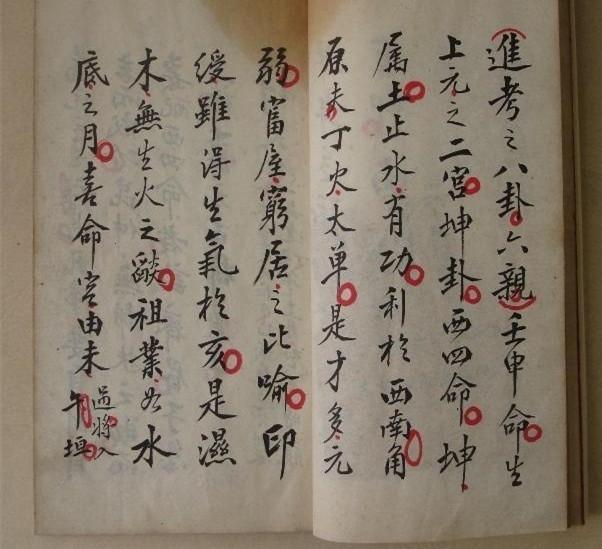 進考之八卦六親壬申命生
上元之二宮坤卦西四命坤
属土止水有功利於西南角
原未丁火太单是才多元
弱富屋窮居之比喻印
绶雖得生氣於亥是濕
木無生火之燄祖業如水
底之月喜命宫由未過将入
午垣